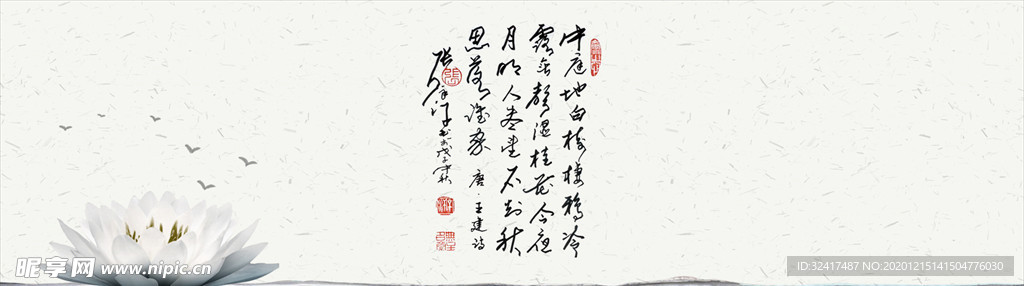 中庭地白樹棲鴉冷
露無聲濕桂花今夜
月明人盡望不知秋
思落誰家 唐·王建詩
昵享网 www.nipic.cn
ID:32417487 NO:20201215141504776030